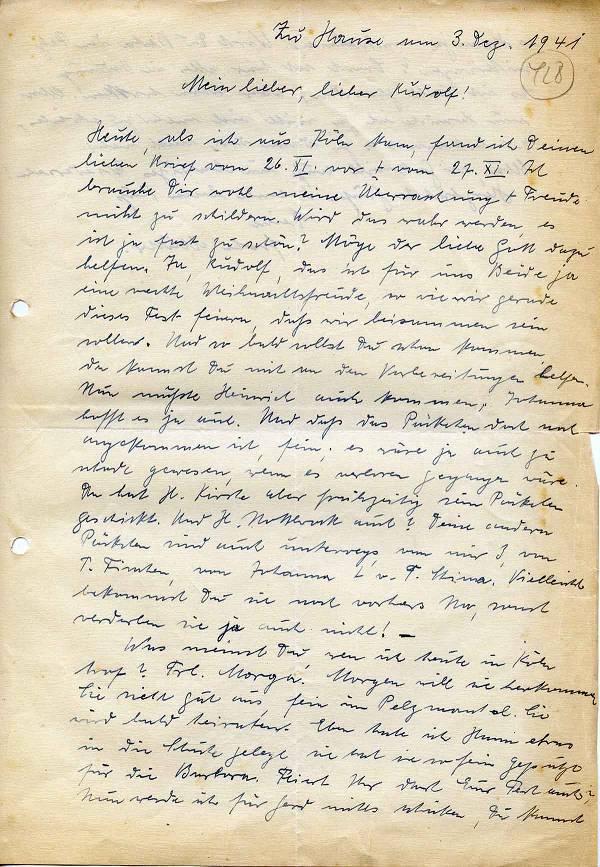 Zu Hause am 3. Dez. 1941
428
Mein lieber, lieber Rudolf!
Heute, als ich aus Köln kam, fand ich Deinen
lieben Brief vom 26. XI. vor + vom 27. XI. Ich
brauche Dir wohl meine Überraschung + Freude
nicht zu schildern. Wird das wahr werden, es
ist ja fast zu schön? Möge der liebe Gott dazu
helfen. Ja, Rudolf, das ist für uns Beide ja
eine rechte Weihnachtsfreude, so wie wir gerade
dieses Fest feiern, daß wir beisammen sein
sollen. Und so bald sollst Du schon kommen,
da kannst Du mit an den Vorbereitungen helfen.
Nun müßte Heinrich auch kommen, Johanna
hofft es ja auch. Und daß das Päckchen dort noch
angekommen ist, fein, es wäre ja auch zu
schade gewesen, wenn es verloren gegangen wäre.
Da hat H. Kirste aber frühzeitig sein Päckchen
geschickt. Und H. auch? Deine andern
Päckchen sind auch unterwegs, von mir 3, von
T. Finchen, von Johanna + v. T. Stina. Vielleicht
bekommst Du sie noch vorher, sonst
verderben sie ja auch nicht! —
Was meinst Du, wen ich heute in Köln
traf? Frl. Morga. Morgen will sie herkommen
Sie sieht gut aus, fein im Pelzmantel. Sie
wird bald heiraten. Eben habe ich Hanni etwas
in die Schuhe gelegt, sie hat sie so fein geputzt
für die Barbara. Feiert Ihr dort Euer Fest auch?
Nun werde ich für Gerd nichts schicken, Du kannst